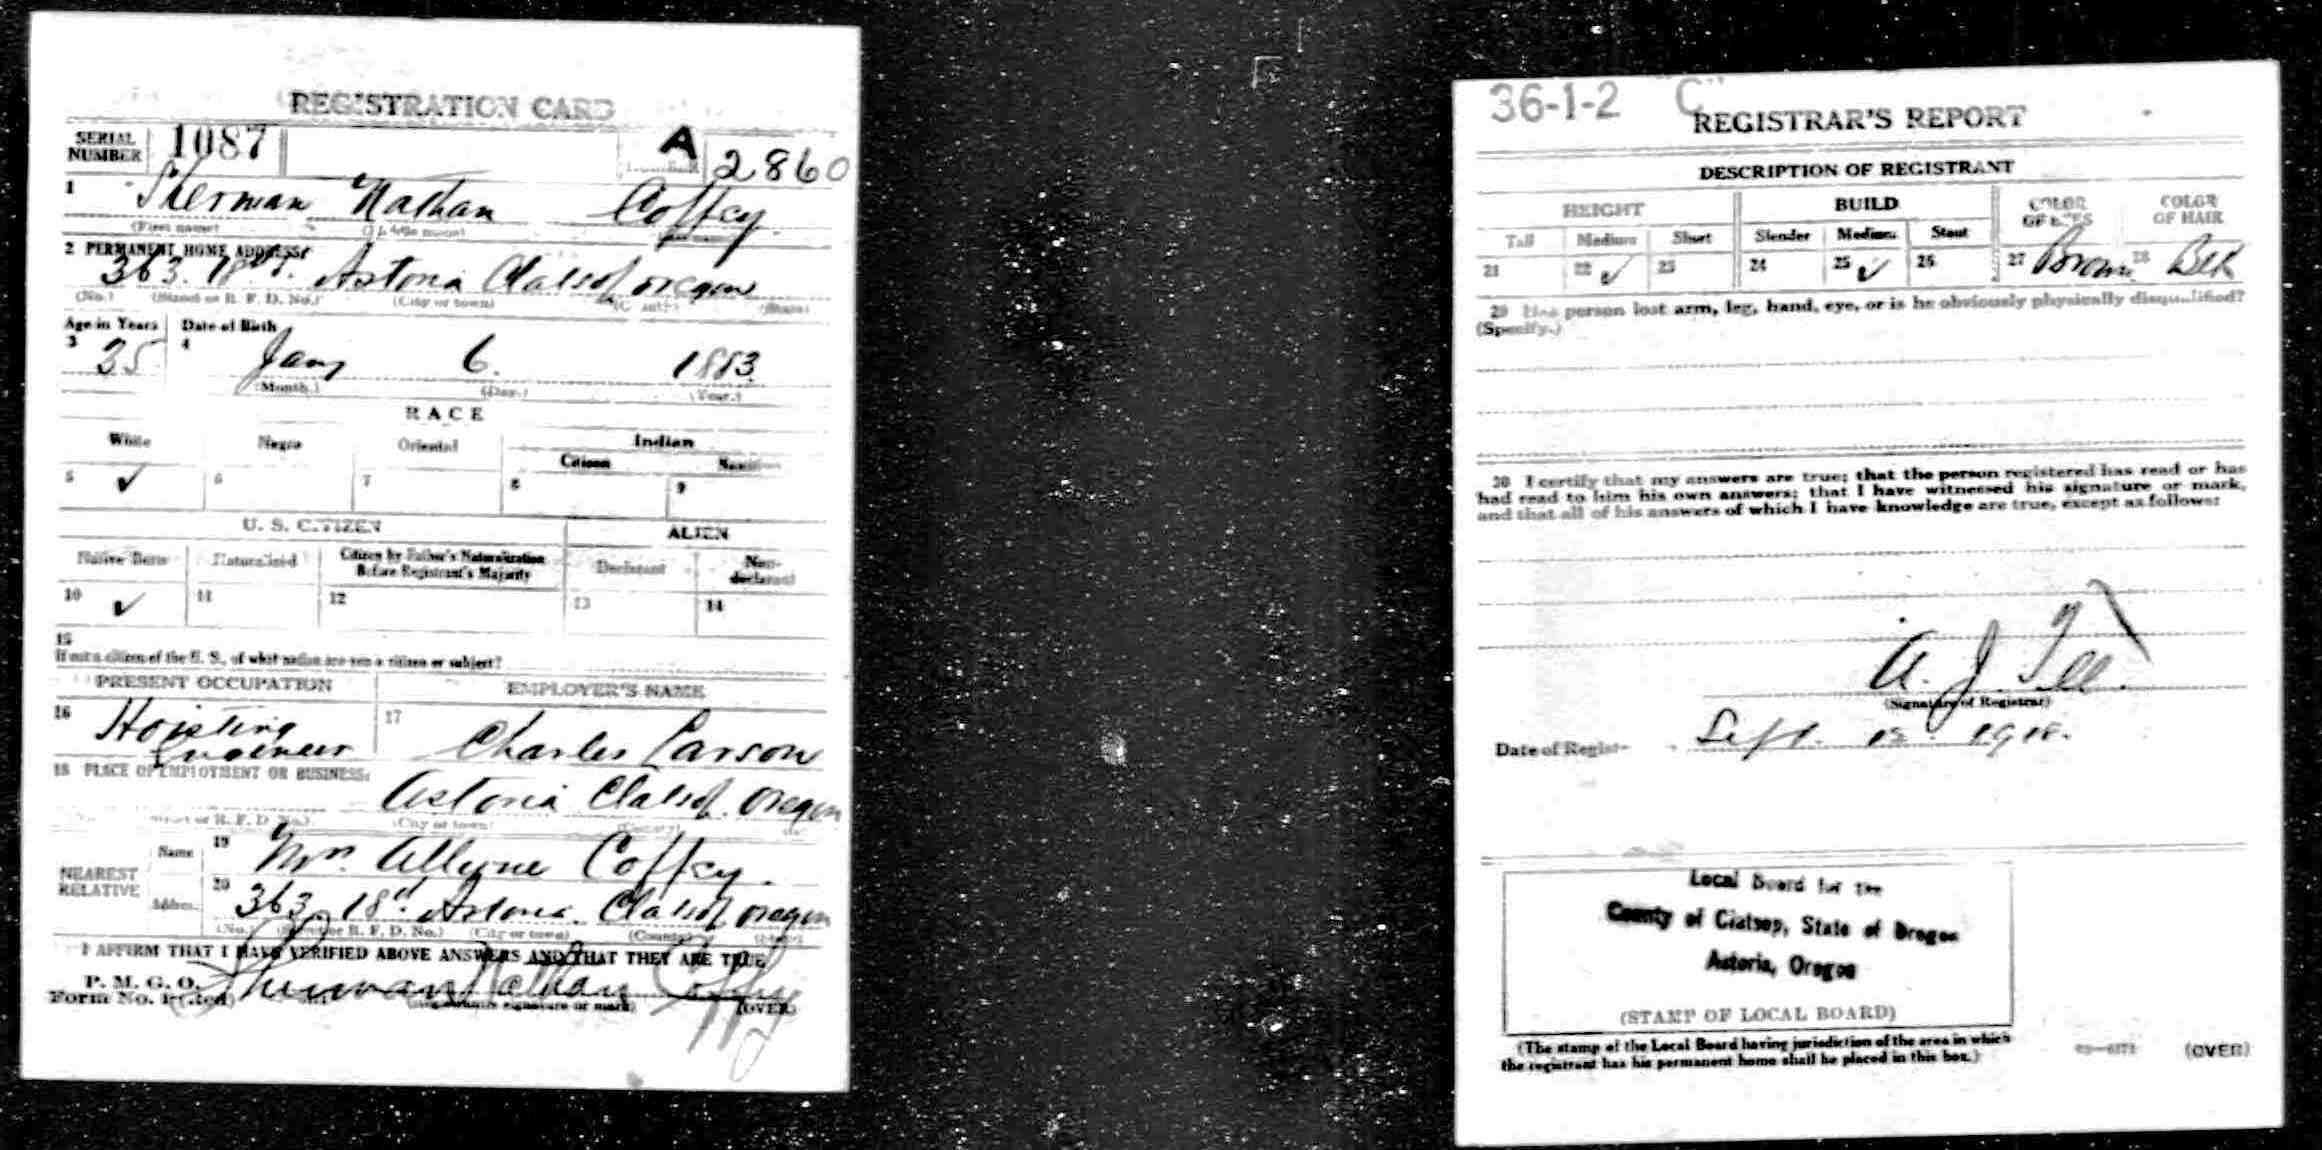 REGISTRATION CARD
SERIAL NUMBER 1087 A 2860
1 Sherman Nathan Coffey
(First name) (Middle name)
2 PERMANENT HOME ADDRESS:
363. 18th. Astoria Clatsop Oregon
(No.) (Street or R. F. D. No.) (City or town) (County) (State)
Age in Years Date of Birth
3 35 4 Jany 6. 1883.
(Month.) (Day.) (Year.)
RACE
White Negro Oriental Indian
Citizen
5 ✓ 6 7 8 9
U. S. CITIZEN ALIEN
Native Born Naturalized Citizen by Father's Naturalization Before Registrant's Majority Declarant Non-declarant
10 ✓ 11 12 13 14
15
If not a citizen of the U. S., of what nation are you a citizen or subject?
PRESENT OCCUPATION EMPLOYER'S NAME
16 Hoisting Engineer 17 Charles Larson
18 PLACE OF EMPLOYMENT OR BUSINESS:
Astoria Clatsop. Oregon
or R. F. D. No.) (City or town) (County)
NEAREST RELATIVE Name 19 Mrs. Allyne Coffey.
Address 20 363. 18th. Astoria. Clatsop Oregon
(No.) (Street or R. F. D. No.) (City or town) (County) (State)
I AFFIRM THAT I HAVE VERIFIED ABOVE ANSWERS AND THAT THEY ARE TRUE
P. M. G. O.
Form No. 1 (Red) Sherman Nathan Coffey
(Registrant's signature or mark) (OVER)
36-1-2 "C"
REGISTRAR'S REPORT
DESCRIPTION OF REGISTRANT
HEIGHT BUILD COLOR OF EYES COLOR OF HAIR
Tall Medium Short Slender Medium Stout
21 22 ✓ 23 24 25 ✓ 26 27 Brown 28 Blk
29 Has person lost arm, leg, hand, eye, or is he obviously physically disqualified?
(Specify.)
30 I certify that my answers are true; that the person registered has read or has
had read to him his own answers; that I have witnessed his signature or mark,
and that all of his answers of which I have knowledge are true, except as follows:
A. J.
(Signature of Registrar)
Date of Regist- Sept. 12 1918.
Local Board for the
County of Clatsop, State of Oregon
Astoria, Oregon
(STAMP OF LOCAL BOARD)
(The stamp of the Local Board having jurisdiction of the area in which
the registrant has his permanent home shall be placed in this box.)
(OVER)